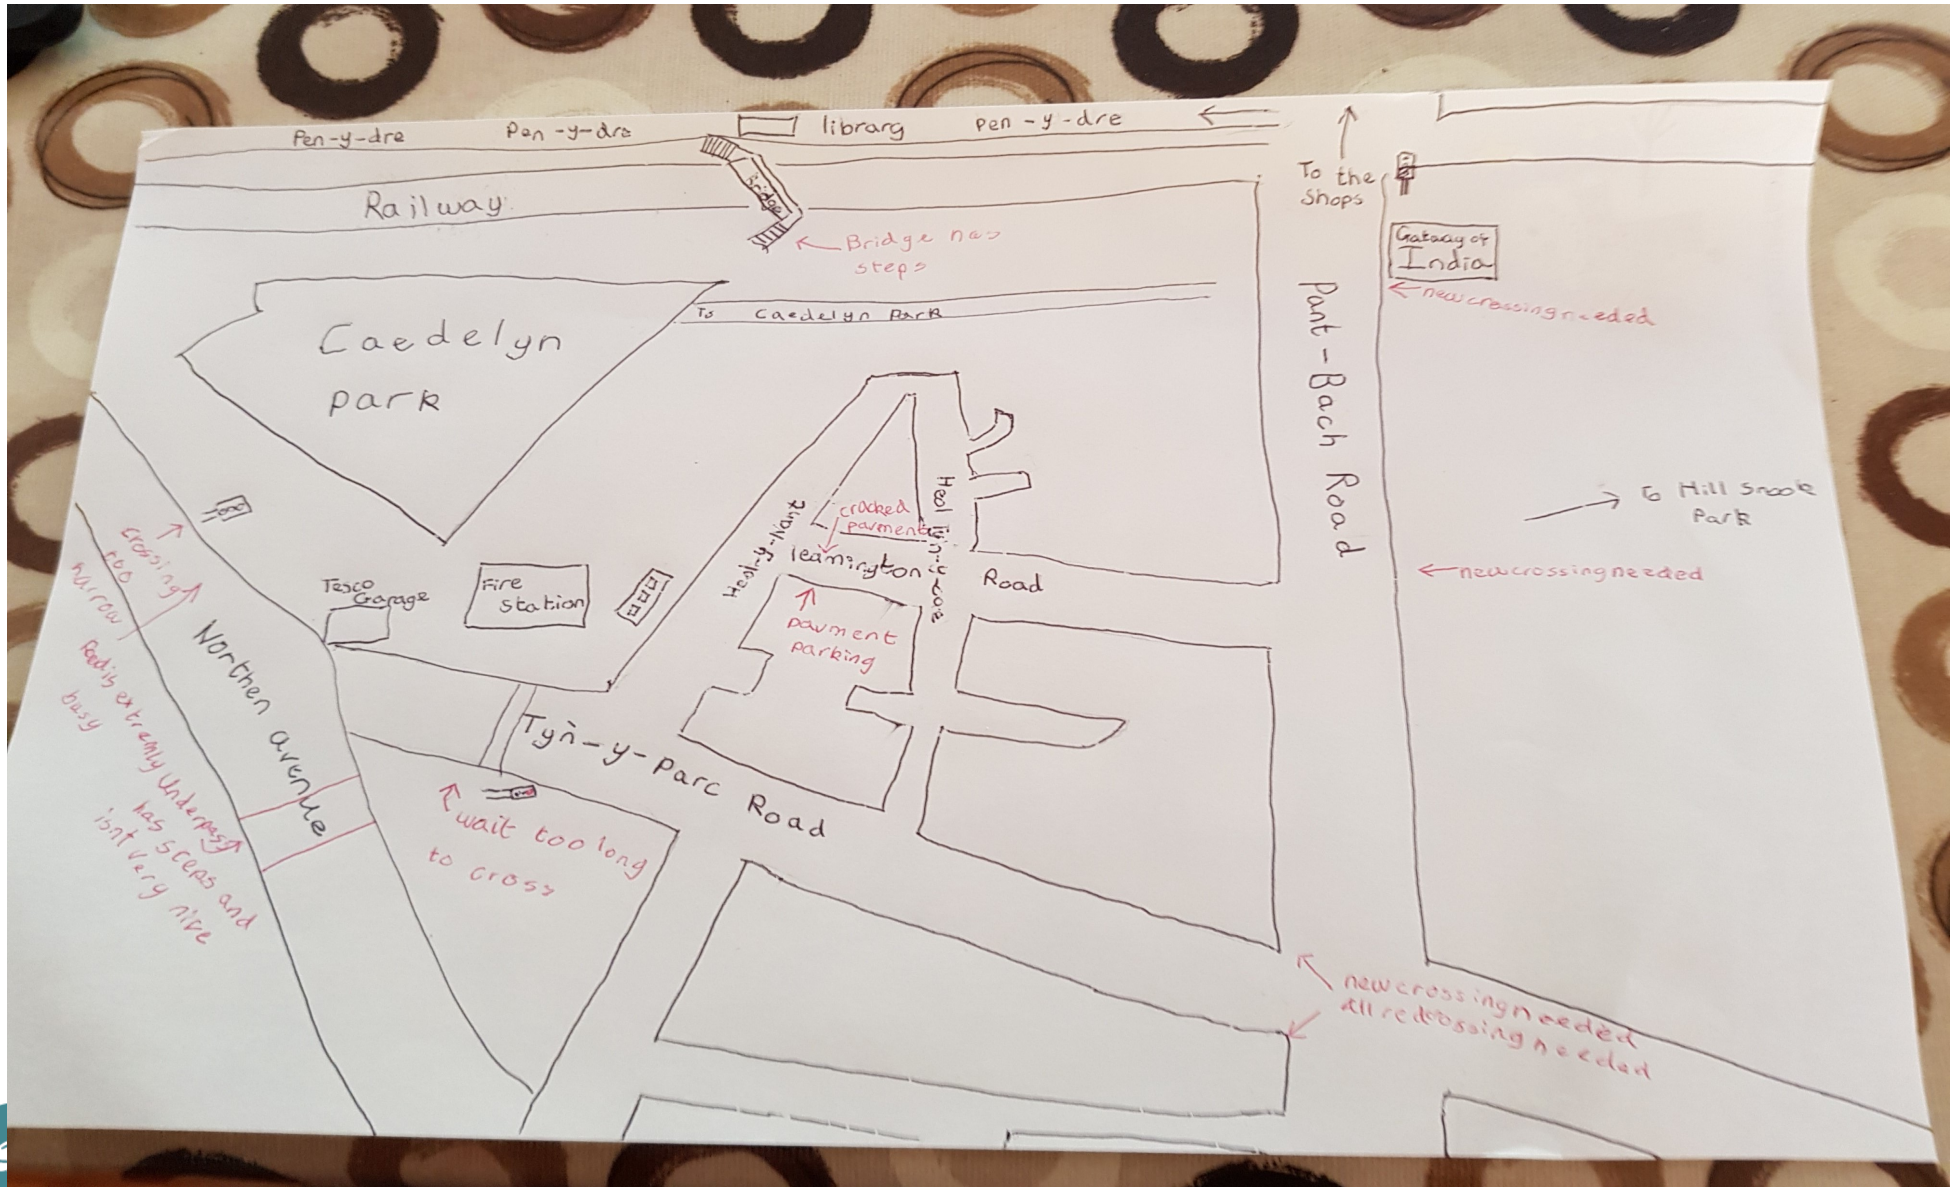 Pen-y-dre
Pen-y-dre
library
pen-y-dre
To the
Shops
Railway
bridge
Bridge has
steps
Gateway of
India
new crossing needed
To Caedelyn Park
Caedelyn
park
Pant-Bach Road
to Hill Snook
Park
cracked
pavment
Heol-y-Nant
leamington
Road
new crossing needed
crossing
too
narrow
Tesco
Garage
Fire
station
pavment
parking
Northen avenue
Road is extremly
busy
Underpass
has steps and
isnt very nice
Tyn-y-parc Road
wait too long
to cross
new crossing needed
all red crossing needed